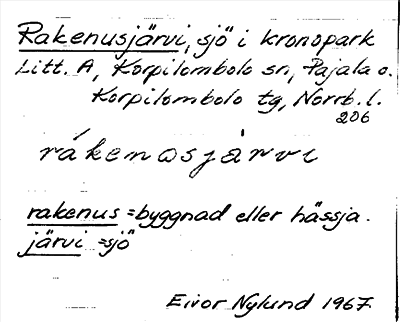 Rakenusjärvi, sjö i kronopark
Litt. A, Korpilombolo sn, Pajala o.
Korpilombolo tg, Norrb. l.
206
rákenosjàrvi
rakenus = byggnad eller hässja.
järvi = sjö
Eivor Nylund 1967.